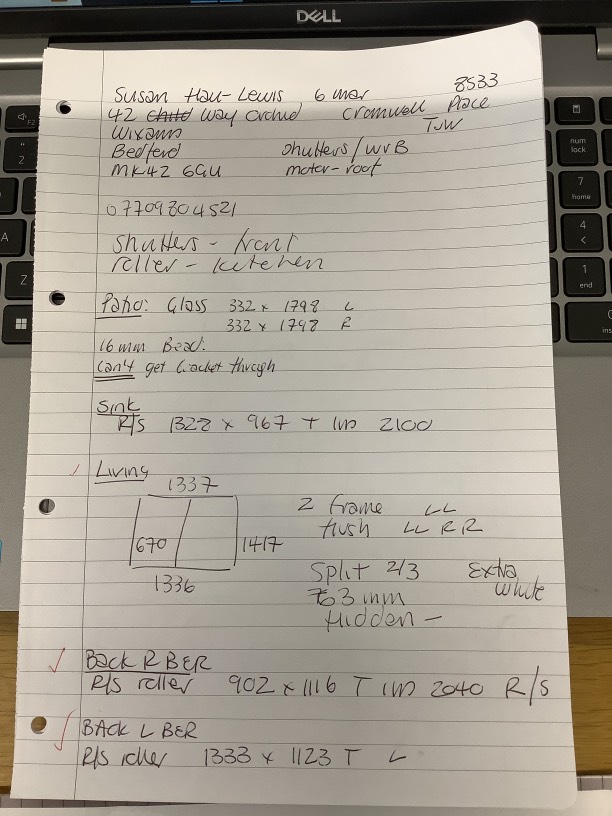 DELL
Susan Hall-Lewis 6 mar 8533
42 Way orchid Cromwell Place
Wixams TJW
Bedford Shutters/WVB
MK42 6GU motor-roof
07709804521
Shutters - front
roller - kitchen
Patio: Glass 332 x 1798 L
332 x 1798 R
16mm Bead.
Can't get bracket through
Sink
R/S 1328 x 967 T 2100
Living
1337
670 1417
1336
2 frame LL
flush LL RR
Split 2/3 Extra
63 mm white
Hidden -
Back R BER
R/S roller 902 x 1116 T 2040 R/S
BACK L BER
R/S roller 1333 x 1123 T L
F2
Z
A
Z
num
lock
7
home
4
1
end
ins